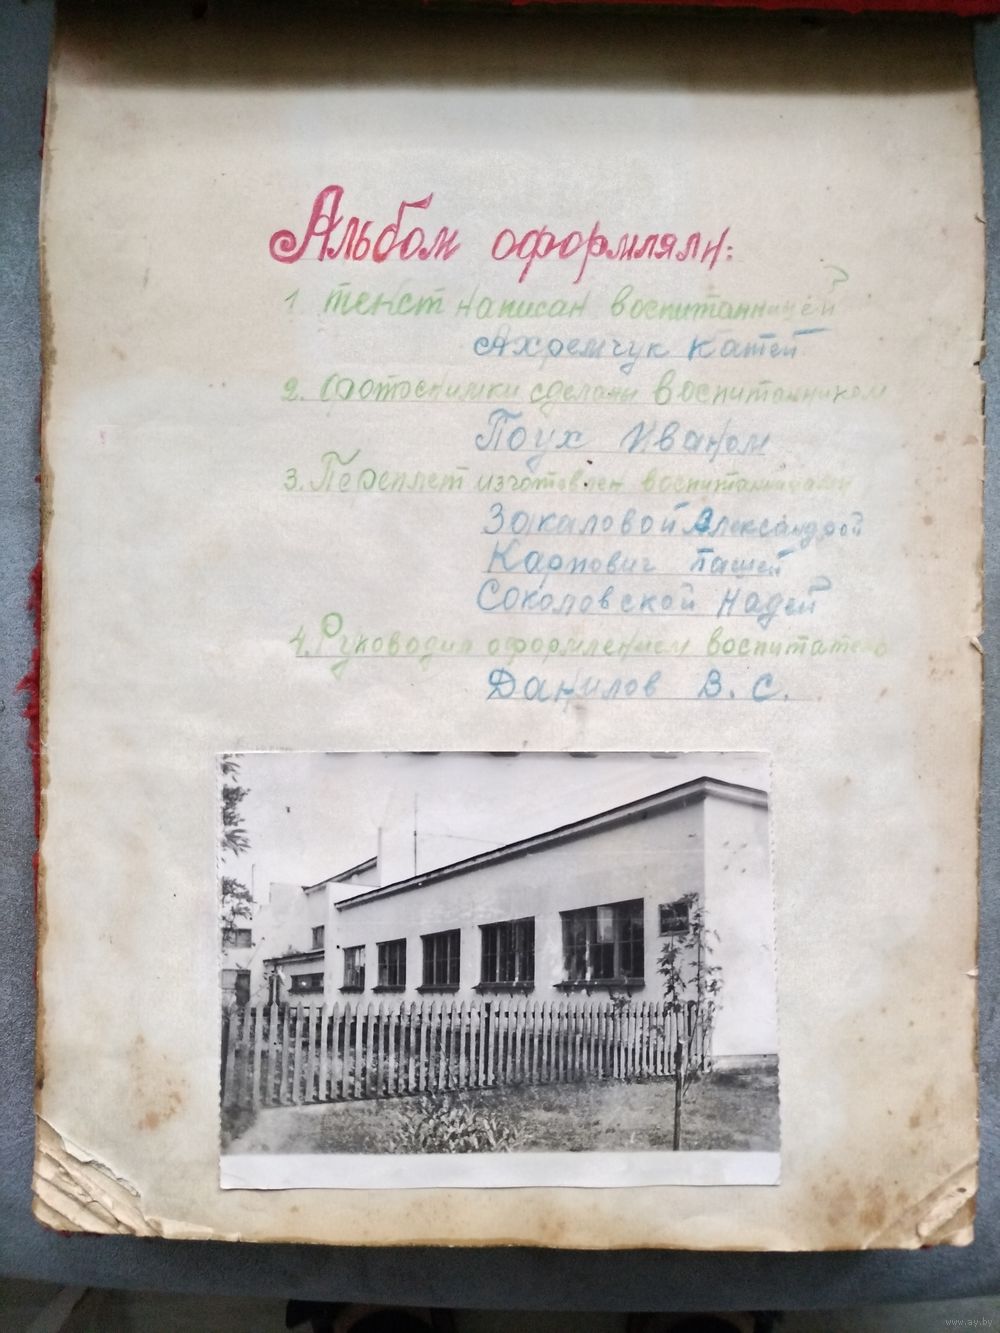 Альбом оформляли:
1 текст написан воспитанницей
Ахремчук Катей
2. Фотоснимки сделаны воспитанником
Поух Иваном
3. Переплет изготовлен воспитанницами
Закаловой Александрой
Карпович Пашей
Соколовской Надей
4. Руководил оформлением воспитатель
Данилов В. С.
www.ay.by